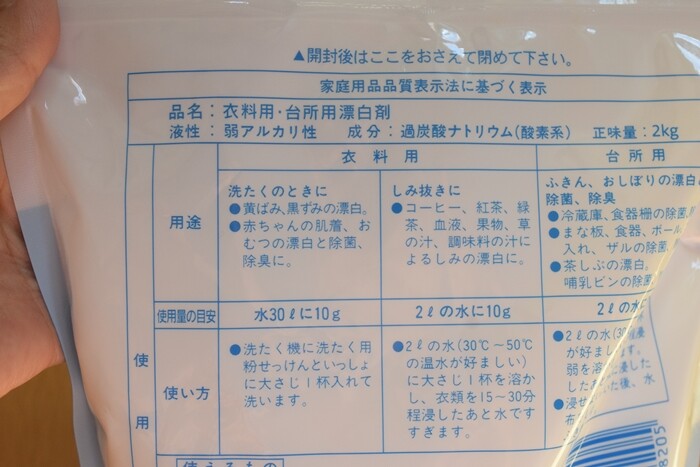 ▲開封後はここをおさえて閉めて下さい。
家庭用品品質表示法に基づく表示
品名：衣料用・台所用漂白剤
液性：弱アルカリ性　成分：過炭酸ナトリウム(酸素系)　正味量：2kg
衣料用
台所用
用途
洗たくのときに
●黄ばみ、黒ずみの漂白。
●赤ちゃんの肌着、お
むつの漂白と除菌、
除臭に。
しみ抜きに
●コーヒー、紅茶、緑
茶、血液、果物、草
の汁、調味料の汁に
よるしみの漂白に。
ふきん、おしぼりの漂白
除菌、除臭
●冷蔵庫、食器棚の除菌
●まな板、食器、ボール
入れ、ザルの除菌
●茶しぶの漂白。
哺乳ビンの除菌
使用量の目安
水30ℓに10g
2ℓの水に10g
2ℓの水
使
用
使い方
●洗たく機に洗たく用
粉せっけんといっしょ
に大さじ1杯入れて
洗います。
●2ℓの水(30℃～50℃
の温水が好ましい)
に大さじ1杯を溶か
し、衣類を15～30分
程浸したあと水です
すぎます。
●2ℓの水(30
が好ま
弱を溶 浸した
した 後、水
●浸
布
使えるもの
8205